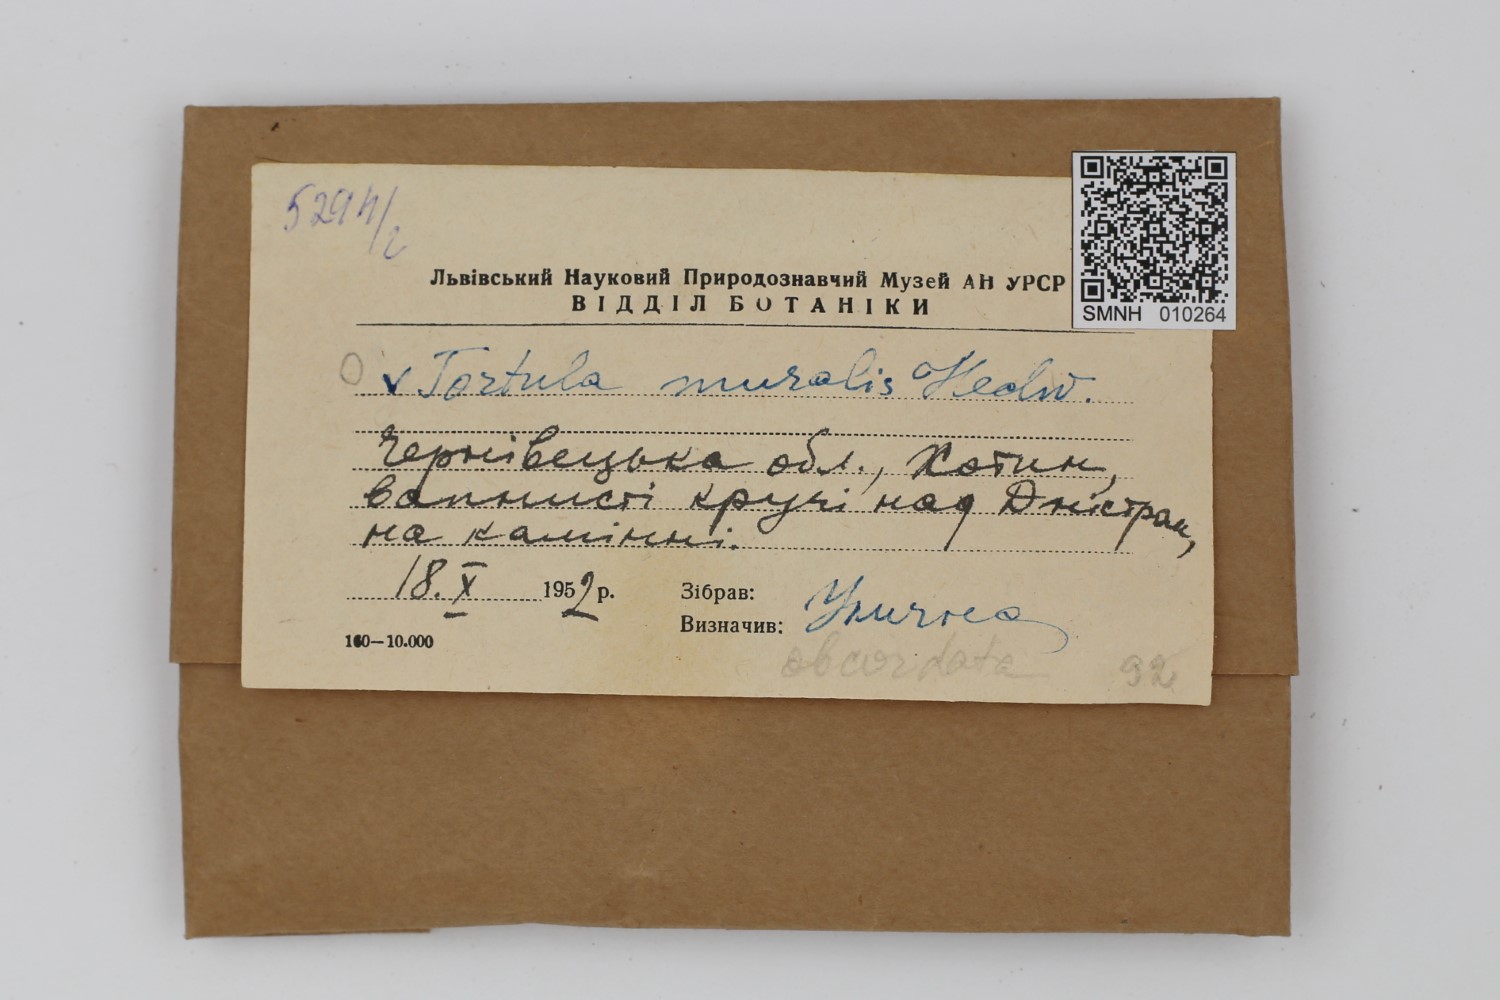 5294/2
Львівський Науковий Природознавчий Музей АН УРСР
ВІДДІЛ БОТАНІКИ
SMNH 010264
v Tortula muralis Hedw.
Чернівецька обл., Хотин,
вапнисті кручі над Дністром,
на камінні.
18.X 1952 р.
Зібрав:
Визначив: Улична
160—10.000
obcordata 92